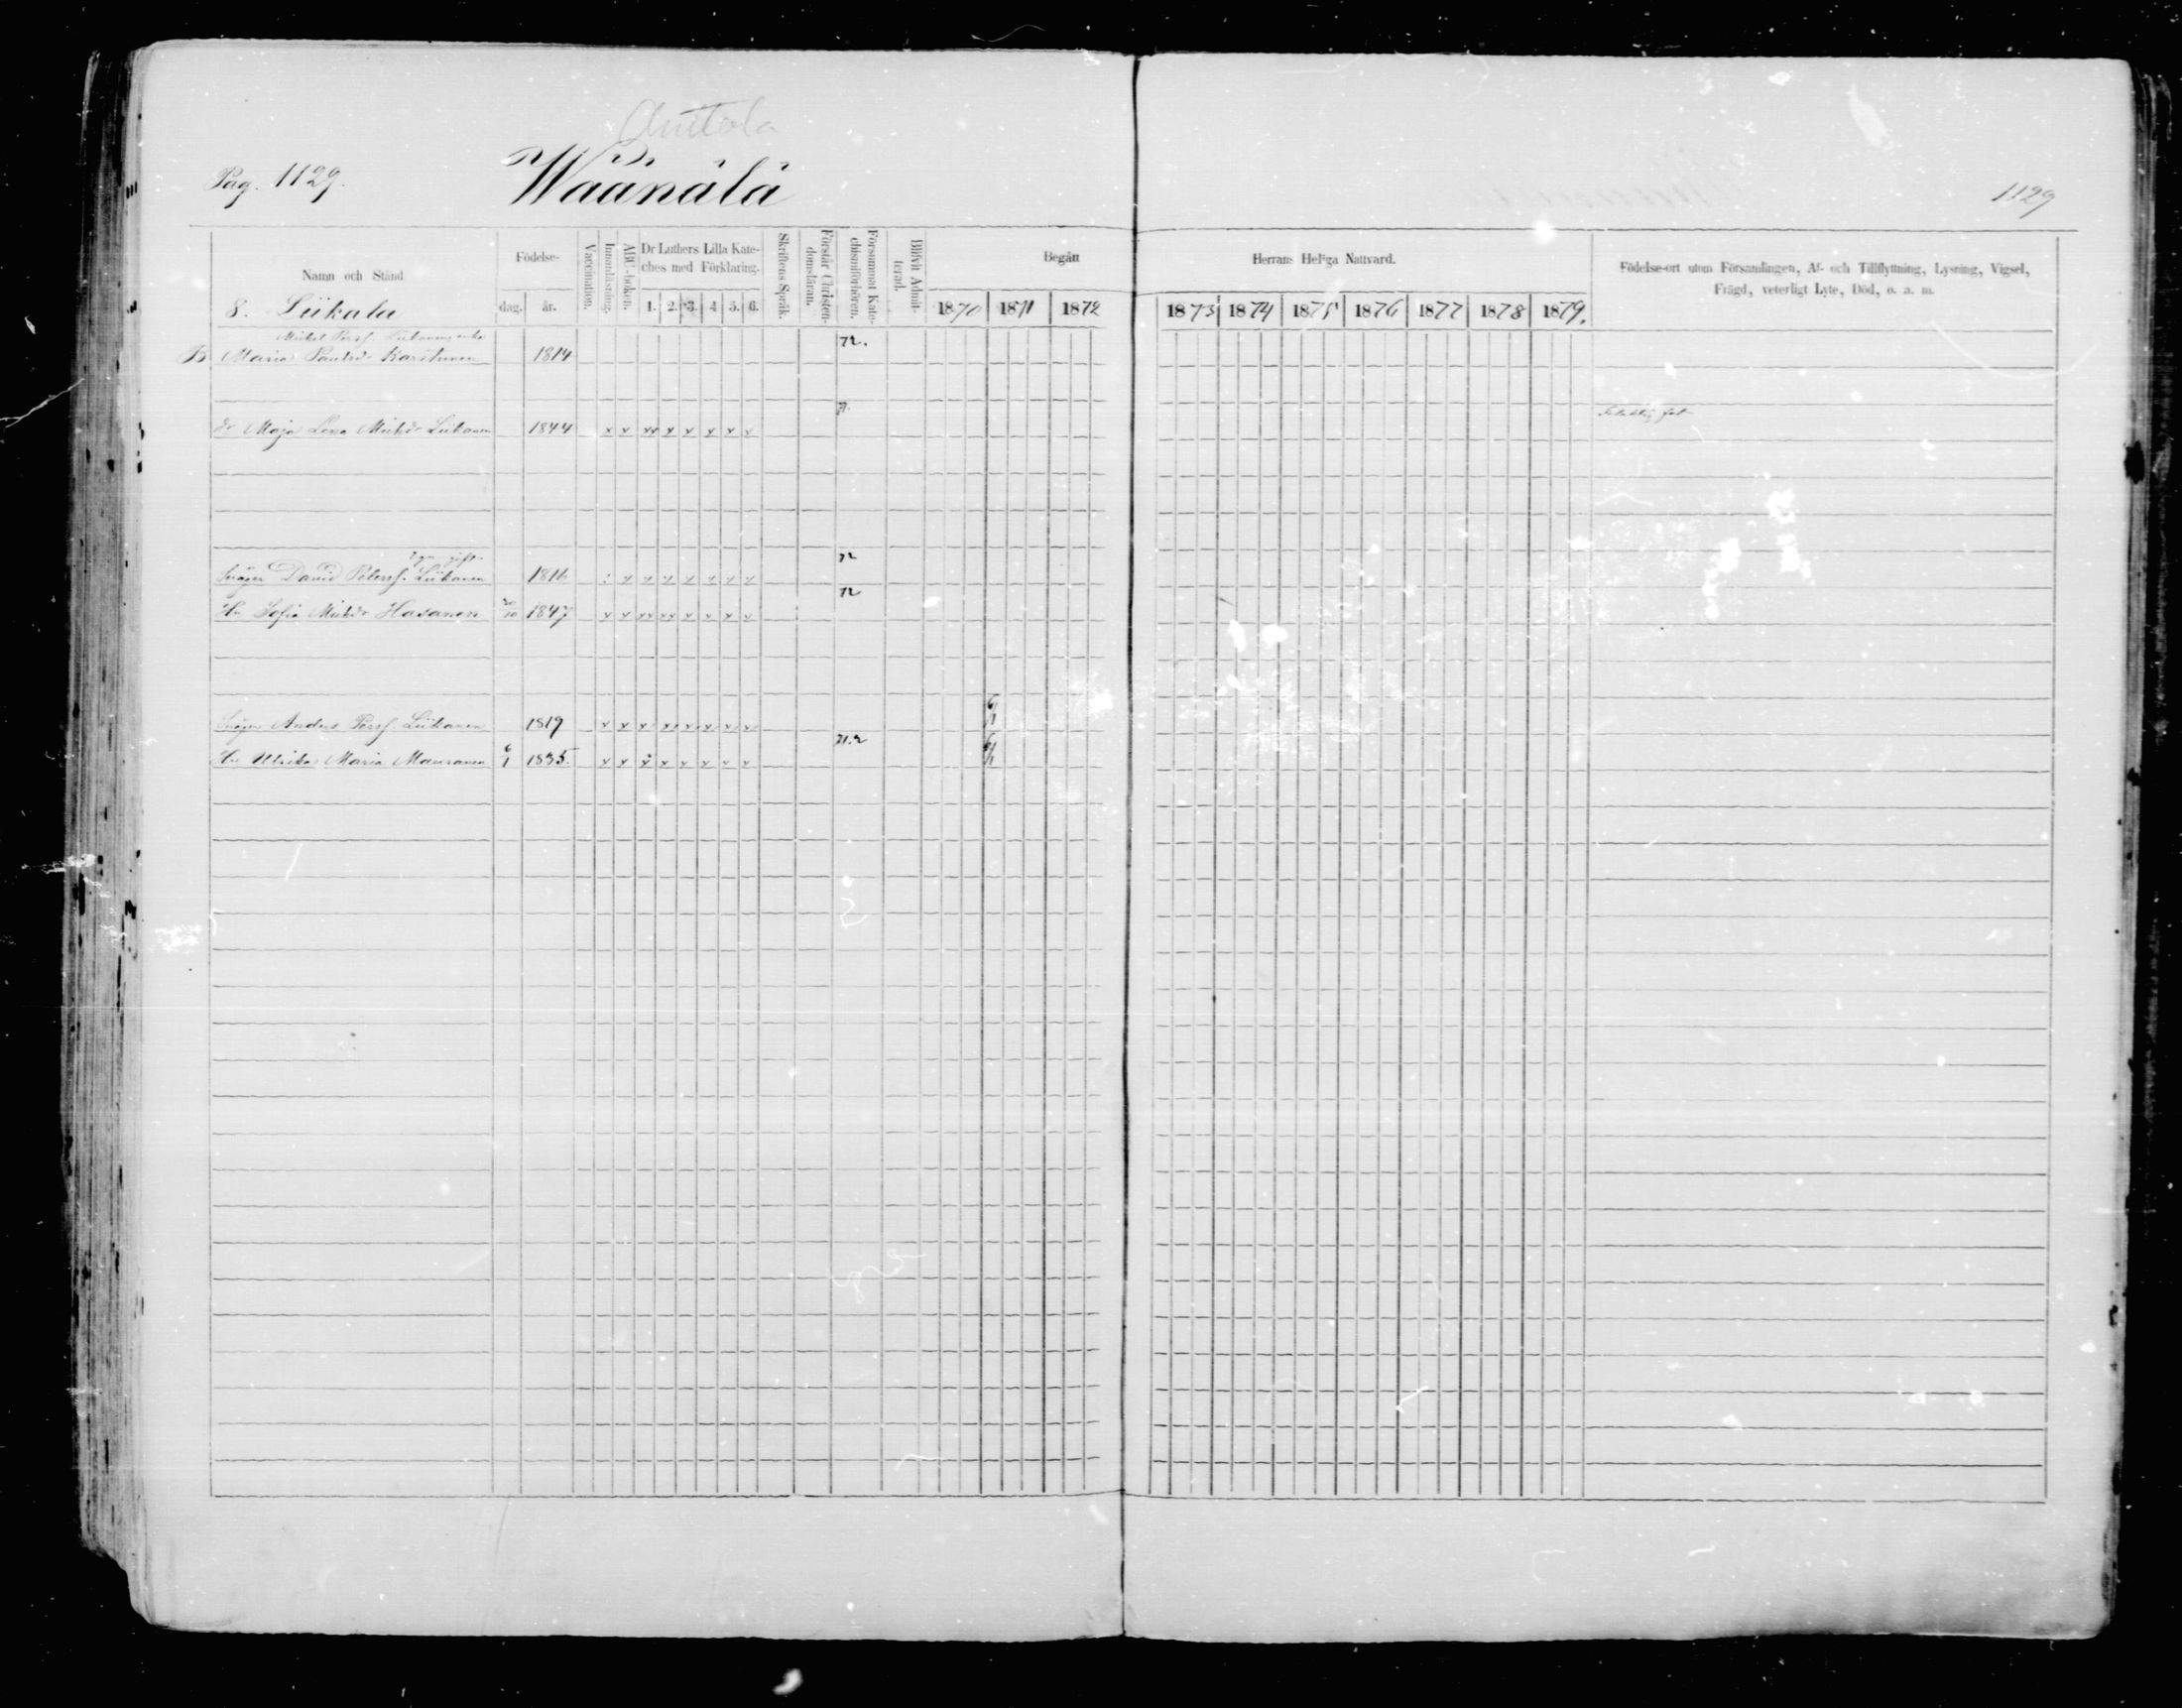 Pag. 1129.
Wäänälä
1129
Namn och Stånd
Födelse-
dag. år.
Vaccination.
Innanläsning.
ABC-boken.
Dr Luthers Lilla Kate-
ches med Förklaring.
1. 2. 3. 4 5. 6.
Skriftens Språk.
Förstår Christen-
domsläran.
Försummat Kate-
chismiförhören.
Blifvit Admit-
terad.
Begått
1870 1871 1872
Herrans Heliga Nattvard.
1873 1874 1875 1876 1877 1878 1879.
Födelse-ort utom Församlingen, Af- och Tillflyttning, Lysning, Vigsel,
Frägd, veterligt Lyte, Död, o. a. m.
8. Liikala
Michel Perss. Liikanens enka
B Maria Paulsdr Karstunen 1814 72.
dr Maja Lena Michsdr Liikanen 1844 x x xx x x x x x 71.
gift
David Peterss. Liikanen 1816 x x x x x x x 72
Hu Sofia Michsdr Hasanen 1847 x x xx xx x x x x 72
Anders Perss. Liikanen 1819 x x x x x x x x
Hu Ulrika Maria Mauranen 6/1 1835. x x x x x x x x 71.2